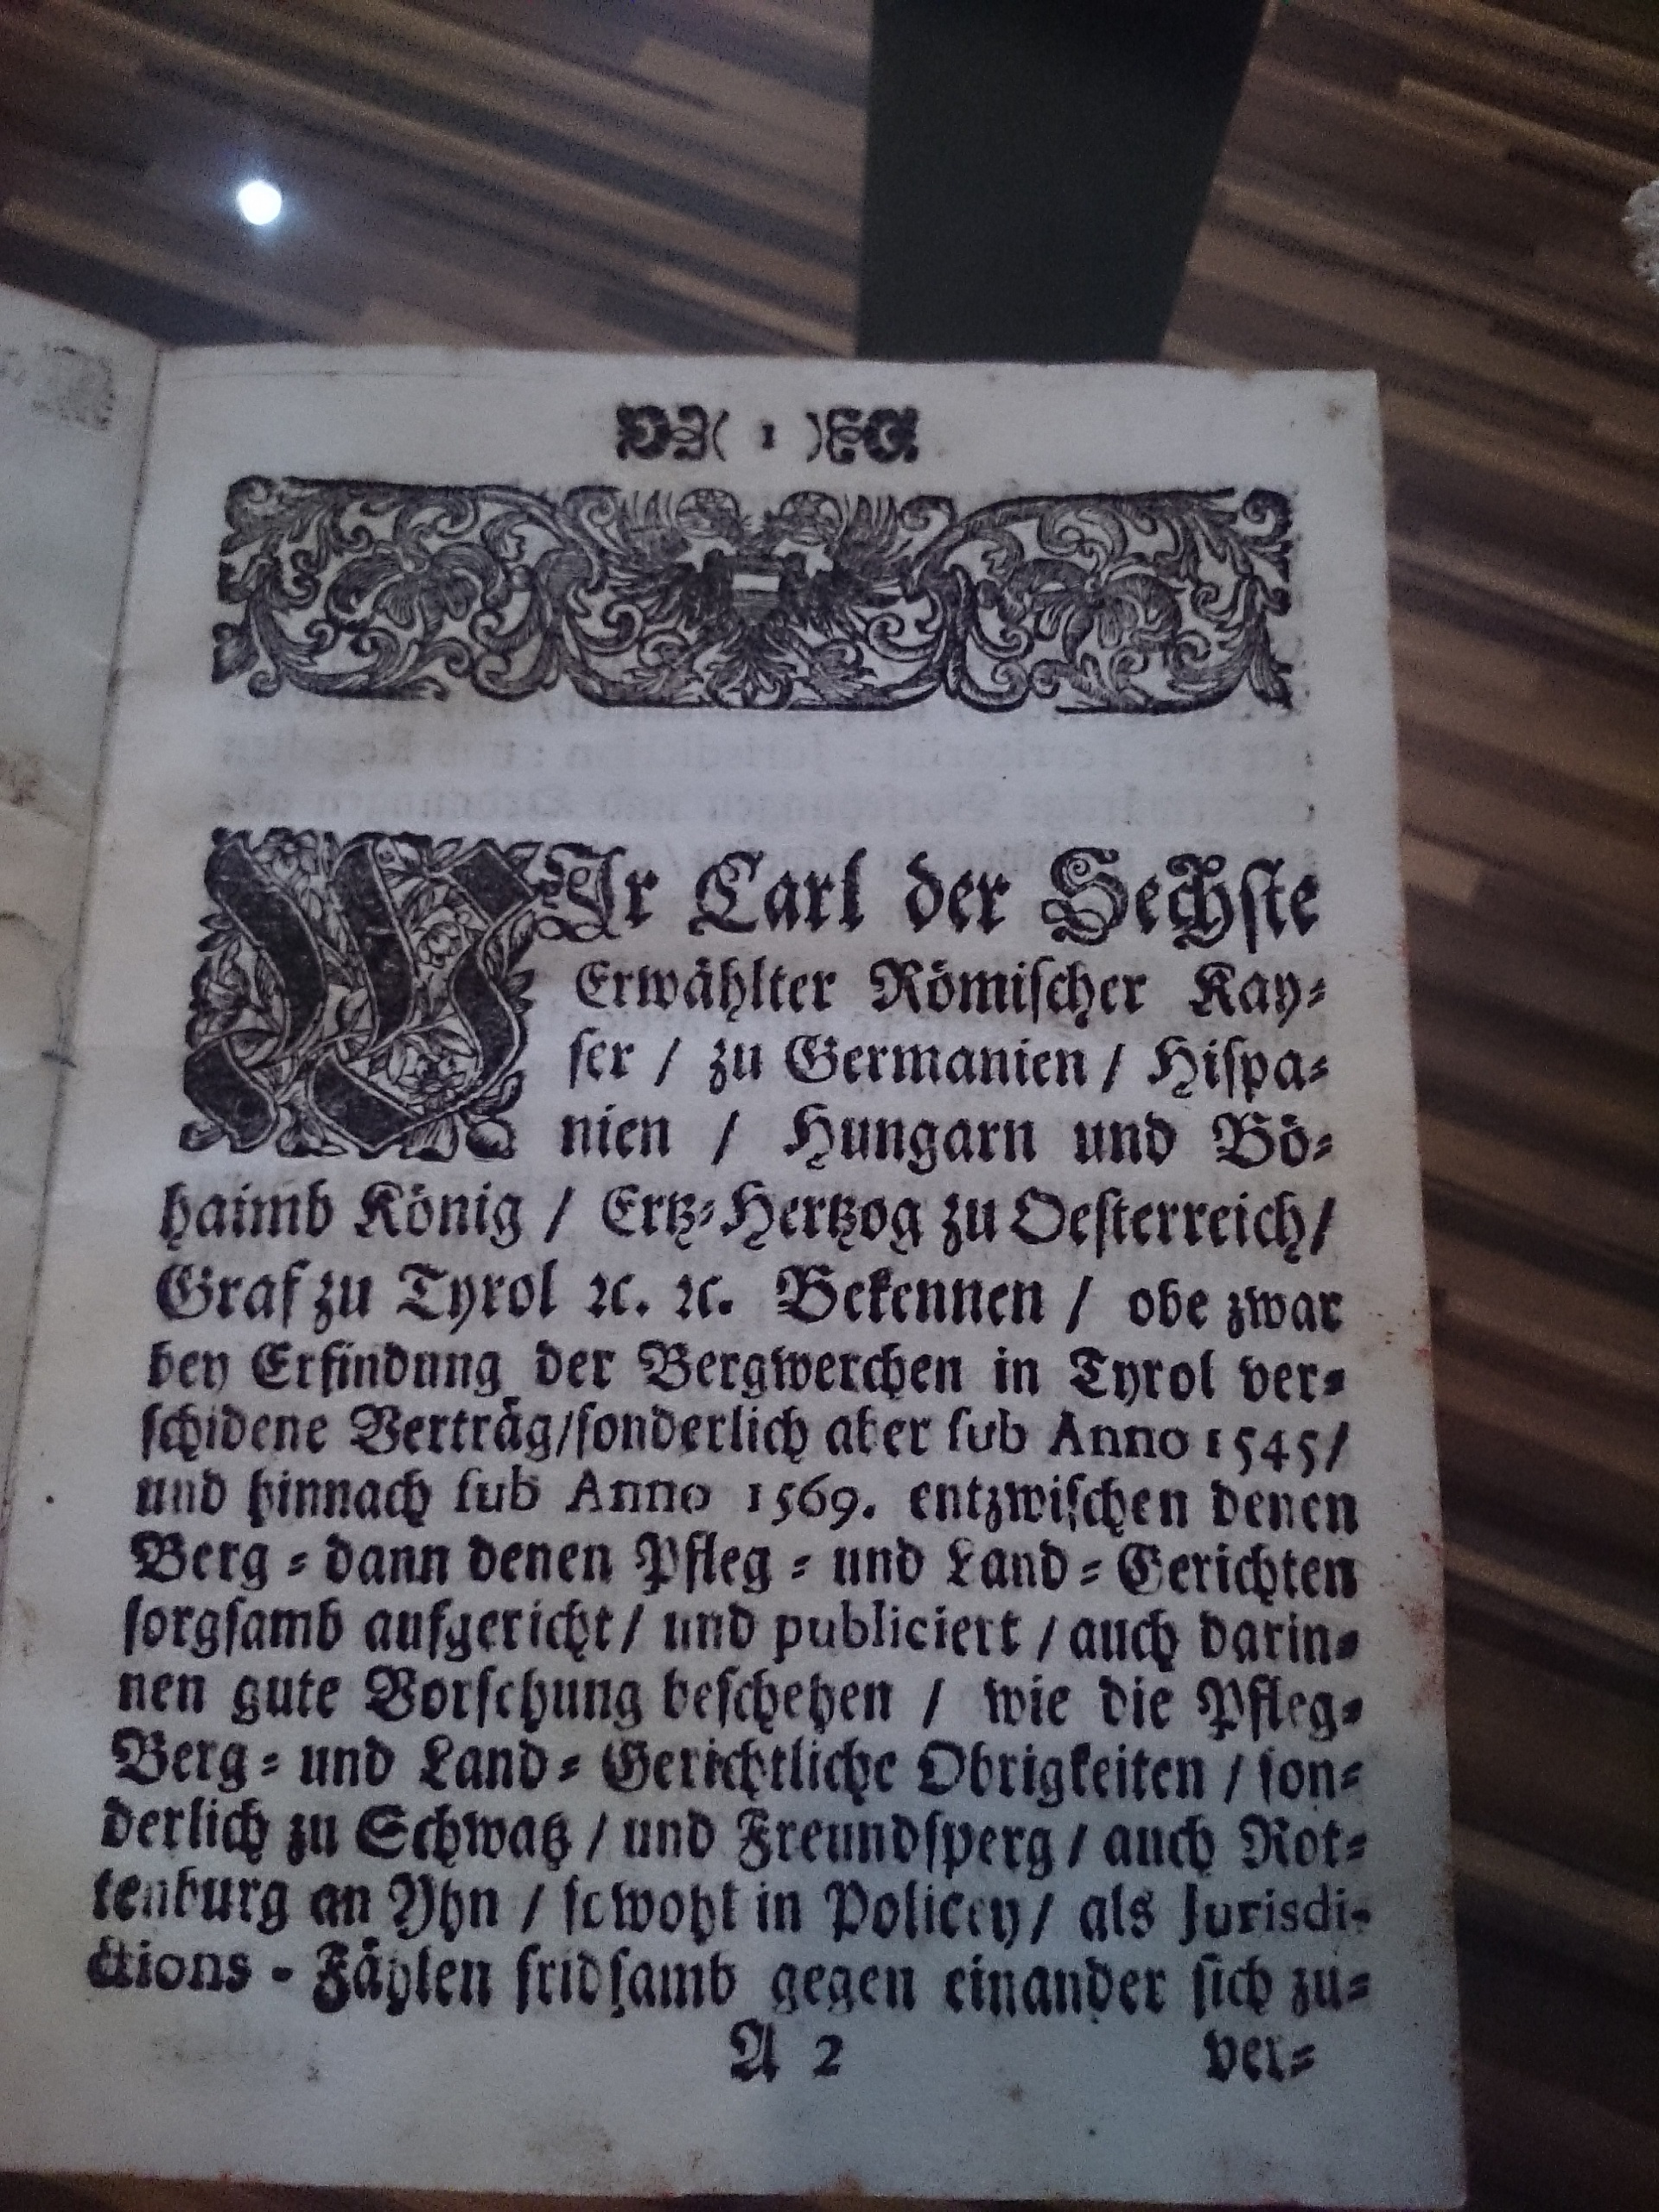 ( 1 )
WIr Carl der Sechste
Erwählter Römischer Kay⸗
ser / zu Germanien / Hispa⸗
nien / Hungarn und Bö⸗
haimb König / Ertz⸗Hertzog zu Oesterreich/
Graf zu Tyrol ꝛc. ꝛc. Bekennen / obe zwar
bey Erfindung der Bergwerchen in Tyrol ver⸗
schidene Verträg/sonderlich aber sub Anno 1545/
und hinnach sub Anno 1569. entzwischen denen
Berg ⸗ dann denen Pfleg ⸗ und Land ⸗ Gerichten
sorgsamb aufgericht / und publiciert / auch darin⸗
nen gute Vorsehung beschehen / wie die Pfleg⸗
Berg ⸗ und Land ⸗ Gerichtliche Obrigkeiten / son⸗
derlich zu Schwatz / und Freundsperg / auch Rot⸗
tenburg an Yhn / sowohl in Policey / als Jurisdi-
ctions - Fählen fridsamb gegen einander sich zu⸗
A 2 ver⸗